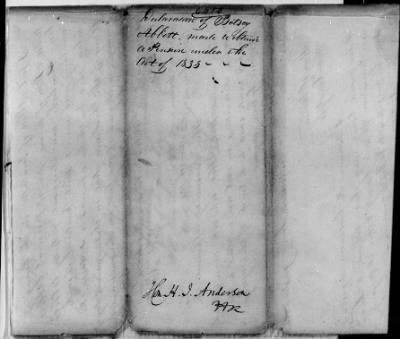 Declaration of Betsey
Abbott. made to obtain
a Pension under the
Act of 1838
Hon. H. J. Anderson
H R